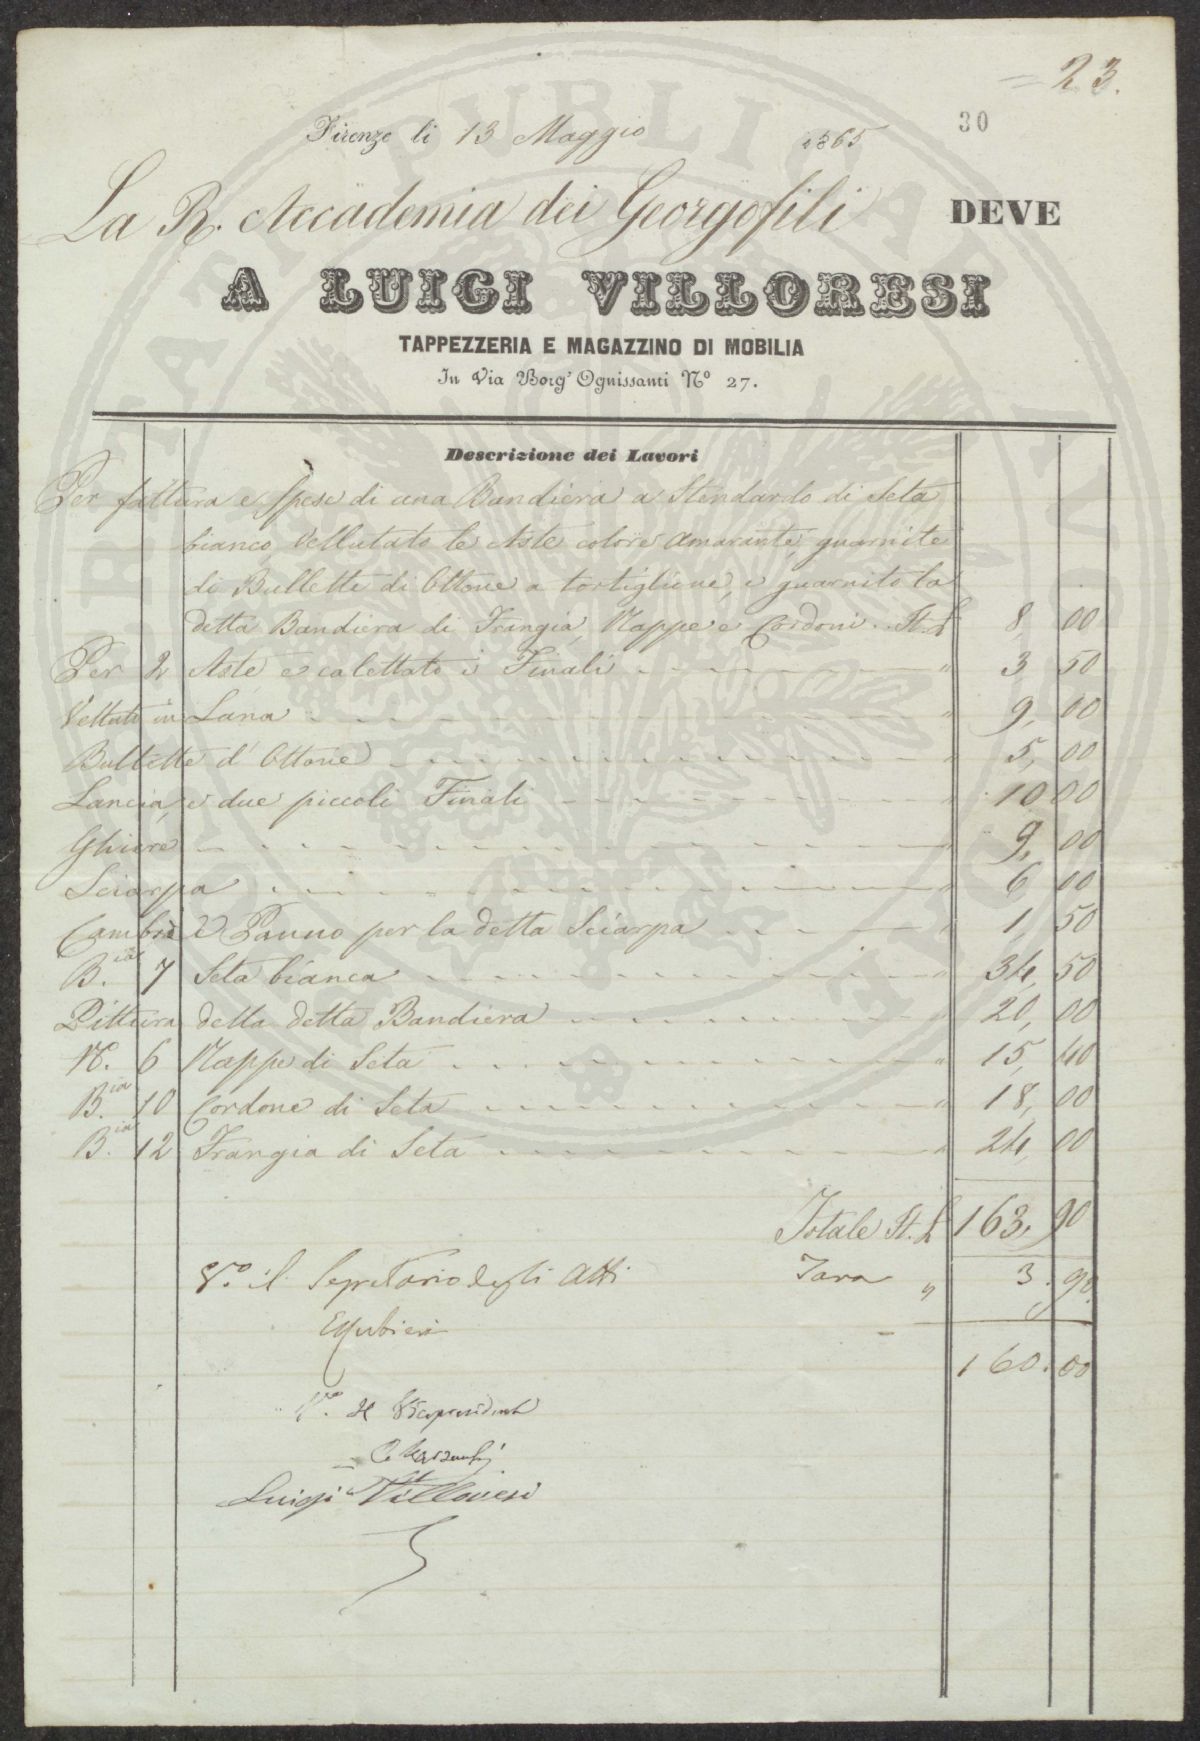 23.
30
Firenze li 13 Maggio 1865
La R. Accademia dei Georgofili DEVE
A LUIGI VILLORESI
TAPPEZZERIA E MAGAZZINO DI MOBILIA
In Via Borg' Ognissanti Nº 27.
Descrizione dei Lavori
Per fattura e Spese di una Bandiera a Stendardo di Seta
bianco, Vellutato le Aste colore Amarante, guarnite
di Bullette di Ottone a tortiglione, e guarnito la
detta Bandiera di Frangia, Nappe e Cordoni .. It. L 8, 00
Per 2 Aste e calettato i Finali " 3 50
Velluto in Lana " 9, 00
Bullette d' Ottone " 5, 00
Lancia, e due piccoli Finali " 10 00
Ghiere " 9, 00
Sciarpa " 6 00
Cambrì e Panno per la detta Sciarpa " 1, 50
B.ia 7 Seta bianca " 34, 50
Pittura della detta Bandiera " 20, 00
N. 6 Nappe di Seta " 15, 40
B.ia 10 Cordone di Seta " 18, 00
B.ia 12 Frangia di Seta " 24, 00
Totale It. L 163, 90
Vº. il Segretario degli Atti Tara " 3. 90
160. 00
Vº. Il Vicepresidente
Luigi Villoresi
ACCADEMIA DEI
PUBLICAE